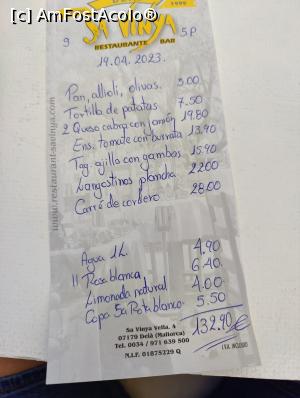 [c] @AmFostAcolo®
1999
SA VINYA
RESTAURANTE BAR
9
5P
19.04.2023.
Pan, allioli, olivas. 5.00
Tortilla de patatas 7.50
2 Queso cabra con jamón 19.80
Ens. tomate con burrata 13.90
Tag. ajillo con gambas 15.90
Langostinos plancha 22.00
Carré de cordero 28.00
www.restaurant-savinya.com
Agua 1L. 4.90
II Rosa blanca 6.40
Limonada natural 4.00
Copa Sa Rota blanco. 5.50
132.90€
Sa Vinya Vella, 4
07179 Deià (Mallorca)
Tel. 0034 / 971 639 500
N.I.F. 01875229 Q
I.V.A. INCLUIDO